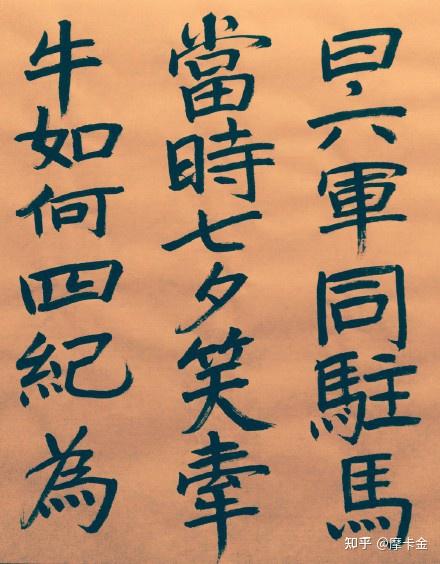 曰六軍同駐馬
當時七夕笑牽
牛如何四紀為
知乎 @摩卡金